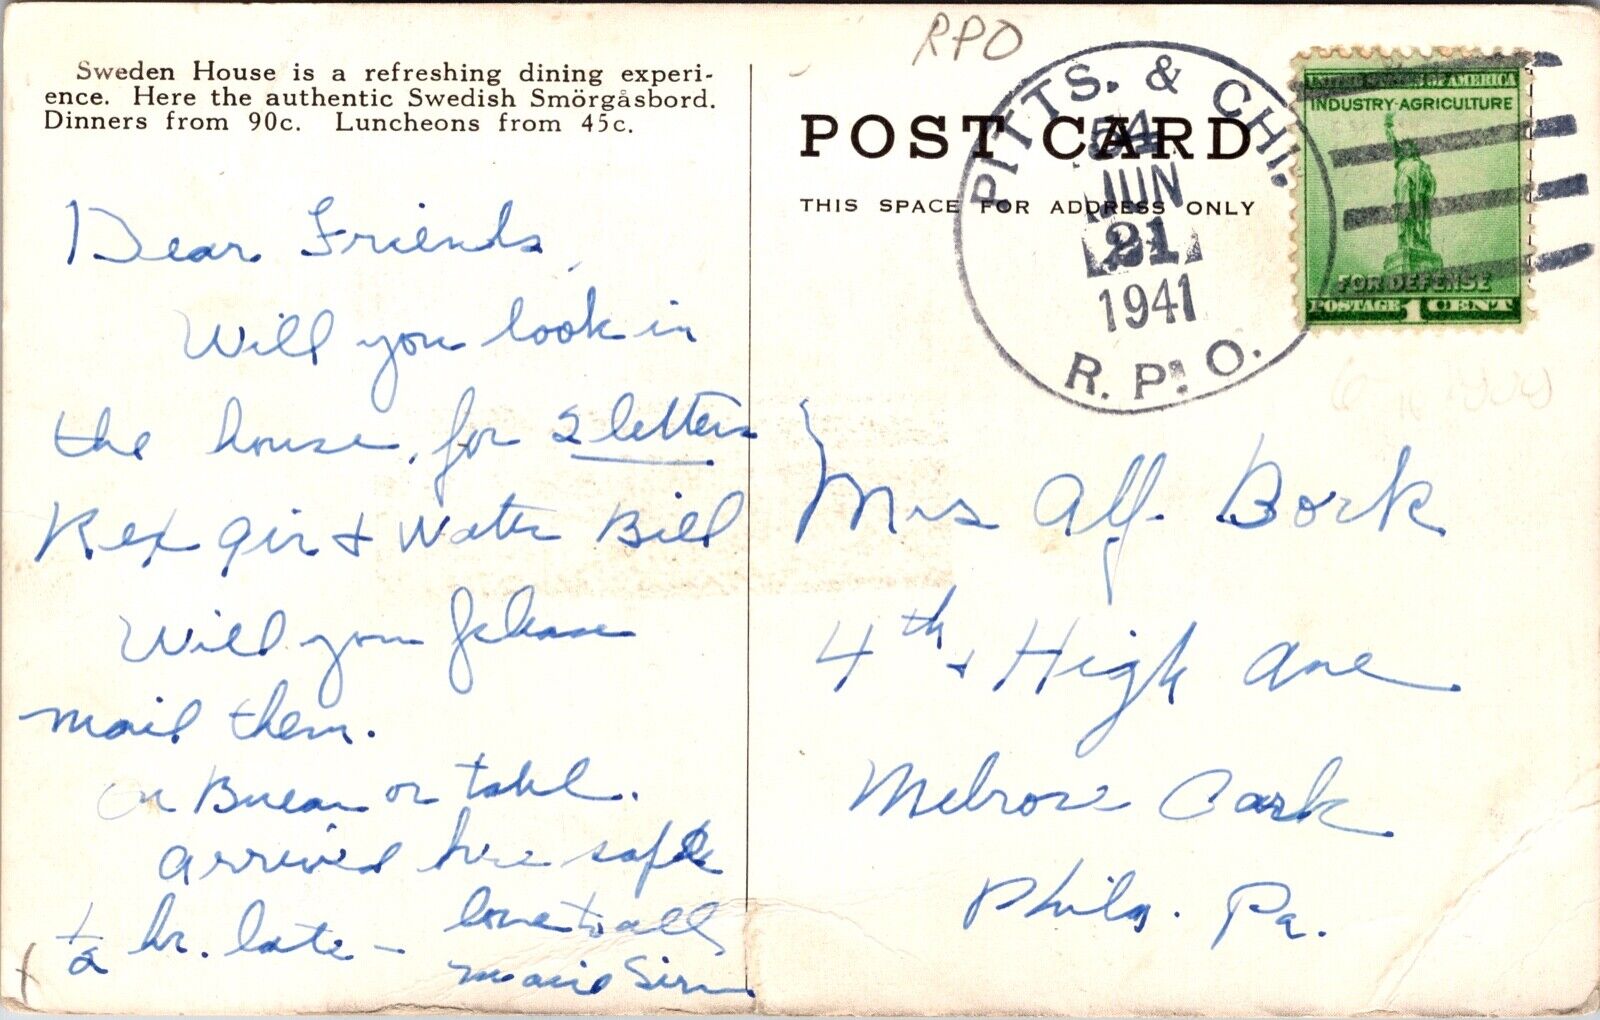 Sweden House is a refreshing dining experi-
ence. Here the authentic Swedish Smörgåsbord.
Dinners from 90c. Luncheons from 45c.
Dear Friends,
Will you look in
the house, for 2 letters
Rex Air & Water Bill
Will you please
mail them.
on Bureau or table.
arrived here safe
1/2 hr. late – love to all
Marie
RPO
POST CARD
THIS SPACE FOR ADDRESS ONLY
PITTS. & CHI.
54
JUN
21
1941
R.P.O.
UNITED STATES OF AMERICA
INDUSTRY-AGRICULTURE
FOR DEFENSE
POSTAGE 1 CENT
Mrs Alf. Bork
4th & High Ave
Melrose Park
Phila. Pa.